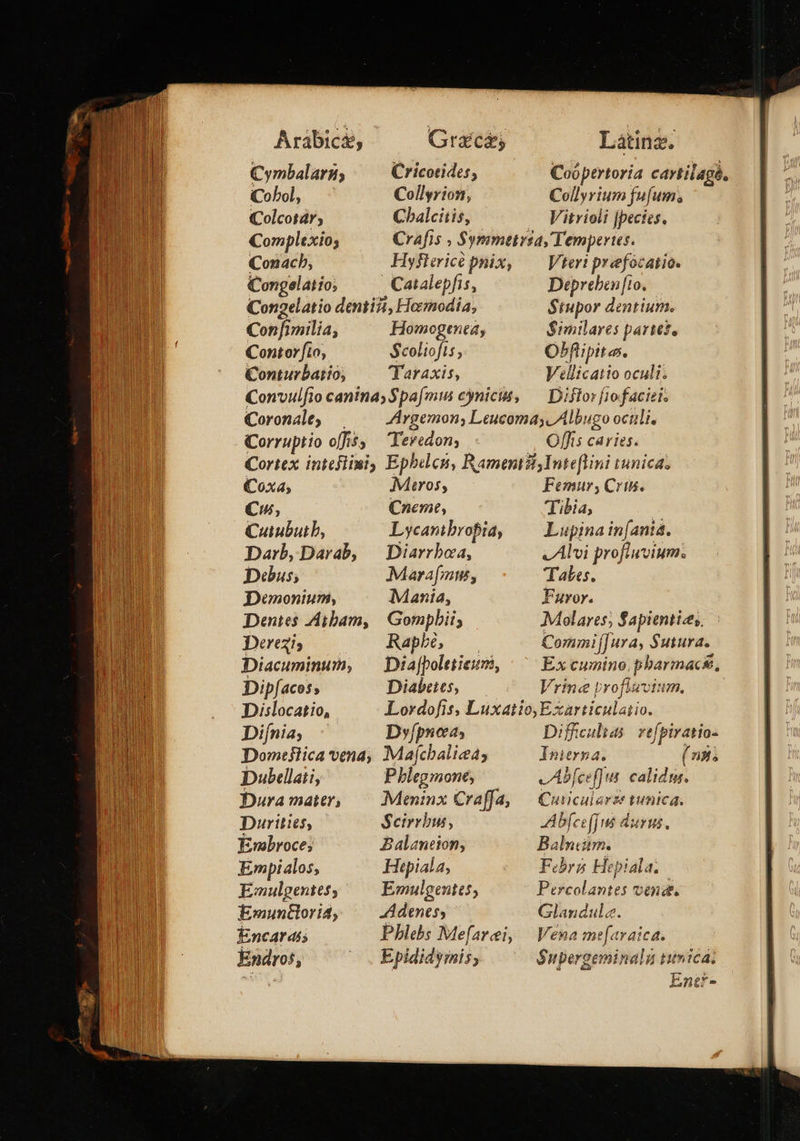 Arabicæ, Græcæ, Latinæ.
Cymbalaris, Cricoeides, Coöpertoria cartilago.
Cohol, Collyrion, Collyrium fuſum.
Colcotar, Chalcitis, Vitrioli ſpecies.
Complexio, Craſis, Symmetria, Temperies.
Conach, Hyſtericè pnix, Vteri præfocatio.
Congelatio, Catalepſis, Deprehenſio.
Congelatio dentiũ, Hæmodia, Stupor dentium.
Conſimilia, Homogenea, Similares partes.
Contorſio, Scolioſis, Obſtipitas.
Conturbatio, Taraxis, Vellicatio oculi.
Convulſio canina, Spaſmus cynicus, Diſtorſio faciei.
Coronale, Argemon, Leucoma, Albugo oculi.
Corruptio oſſis, Teredon, Oſſis caries.
Cortex inteſtini, Ephelcis, Ramentũ, Inteſtini tunica.
Coxa, Meros, Femur, Crus.
Cus, Cneme, Tibia,
Cutubuth, Lycanthropia, Lupina inſania.
Darb, Darab, Diarrhœa, Alvi profluvium.
Debus, Maraſmus, Tabes.
Demonium, Mania, Furor.
Dentes Atham, Gomphii, Molares, Sapientiæ,
Derezi, Raphè, Commiſſura, Sutura.
Diacuminum, Diaſpoleticum, Ex cumino pharmacũ.
Dipſacos, Diabetes, Vrinæ profluvium.
Dislocatio, Lordoſis, Luxatio, Exarticulatio.
Diſnia, Dyſpnœa, Difficultas reſpiratio-
Domeſtica vena, Maſchaliæa, Interna. (nis.
Dubellati, Phlegmone, Abſceſſus calidus.
Dura mater, Meninx Craſſa, Cuticularis tunica.
Durities, Scirrhus, Abſceſſus durus.
Embroce, Balaneion, Balneum.
Empialos, Hepiala, Febris Hepiala.
Emulgentes, Emulgentes, Percolantes venæ.
Emunctoria, Adenes, Glandulæ.
Encaras, Phlebs Meſaræi, Vena meſaraica.
Endros, Epididymis, Supergeminalis tunica.
Ener-